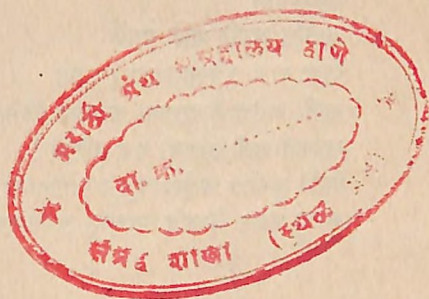 मराठी ग्रंथ संग्रहालय ठाणे
दा. क्र. ..............
संग्रह शाखा (स्थळ